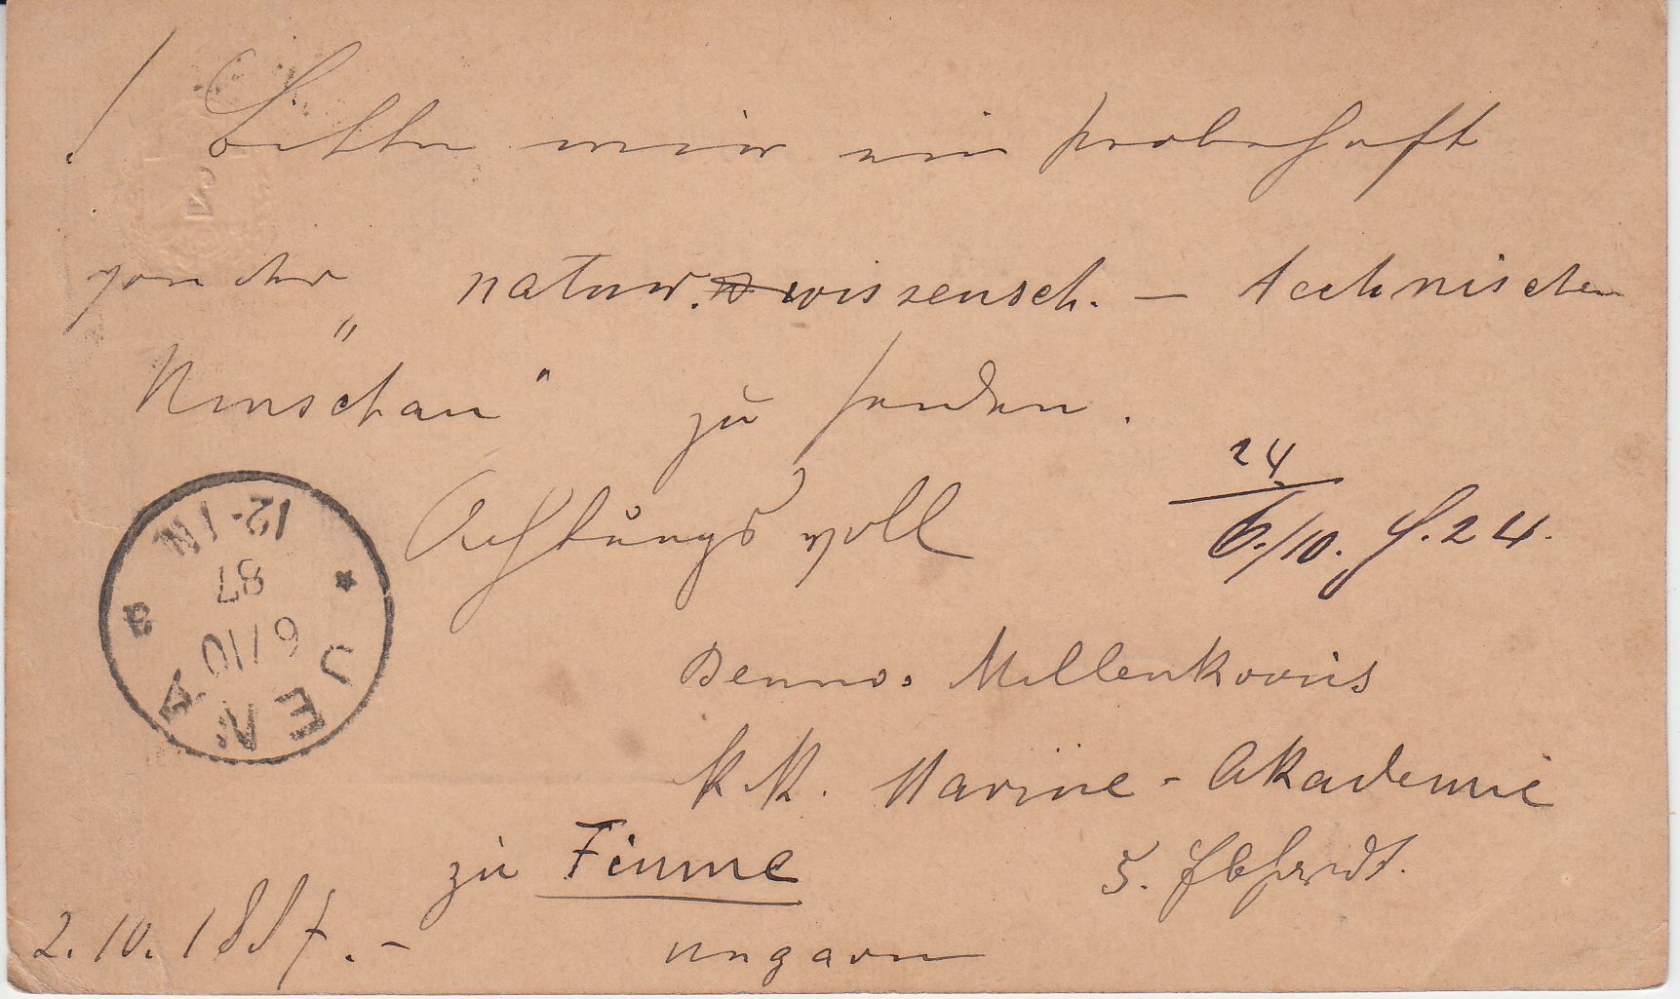 ! Bitte mir ein Probeheft
von der naturwissensch. – technischen
„Umschau“ zu senden.
24
6./10. 24.
Achtungsvoll
Benno Millenkovics
K. K. Marine-Akademie
zu Fiume
2.10.1887. –
Ungarn
JENA
6/10
87
12-1N
a